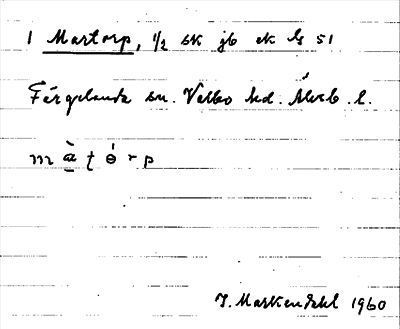 1 Martorp, 1/2 sk jb ek bs 51
Färgelanda sn. Valbo hd. Älvsb. l.
m à̱ t ó r p
J. Markendahl 1960